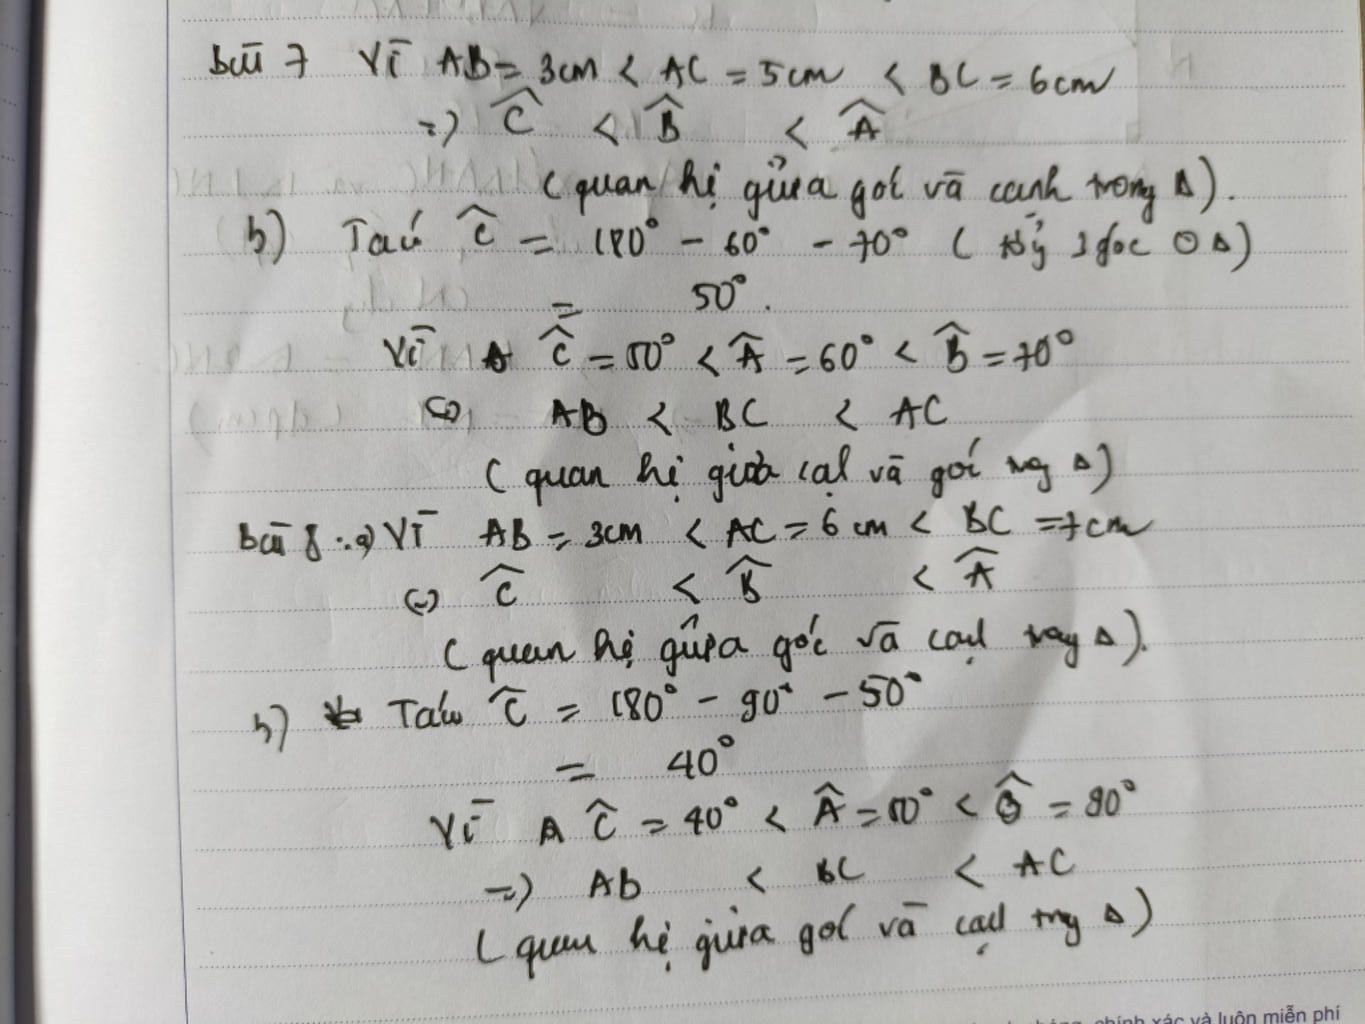 bài 7 Vì AB = 3cm < AC = 5cm < BC = 6cm
=> Ĉ < B̂ < Â
(quan hệ giữa góc và cạnh trong Δ).
b) Ta có Ĉ = 180° - 60° - 70° ( 3 góc Δ)
= 50°.
Vì Ĉ = 50° < Â = 60° < B̂ = 70°
<=> AB < BC < AC
(quan hệ giữa cạh và góc trg Δ)
bài 8: a) Vì AB = 3cm < AC = 6cm < BC = 7cm
<=> Ĉ < B̂ < Â
(quan hệ giữa góc và cạh trong Δ).
b) Ta có Ĉ = 180° - 90° - 50°
= 40°
Vì Ĉ = 40° < Â = 50° < B̂ = 90°
=> AB < BC < AC
(quan hệ giữa góc và cạh trg Δ)
chính xác và luôn miễn phí